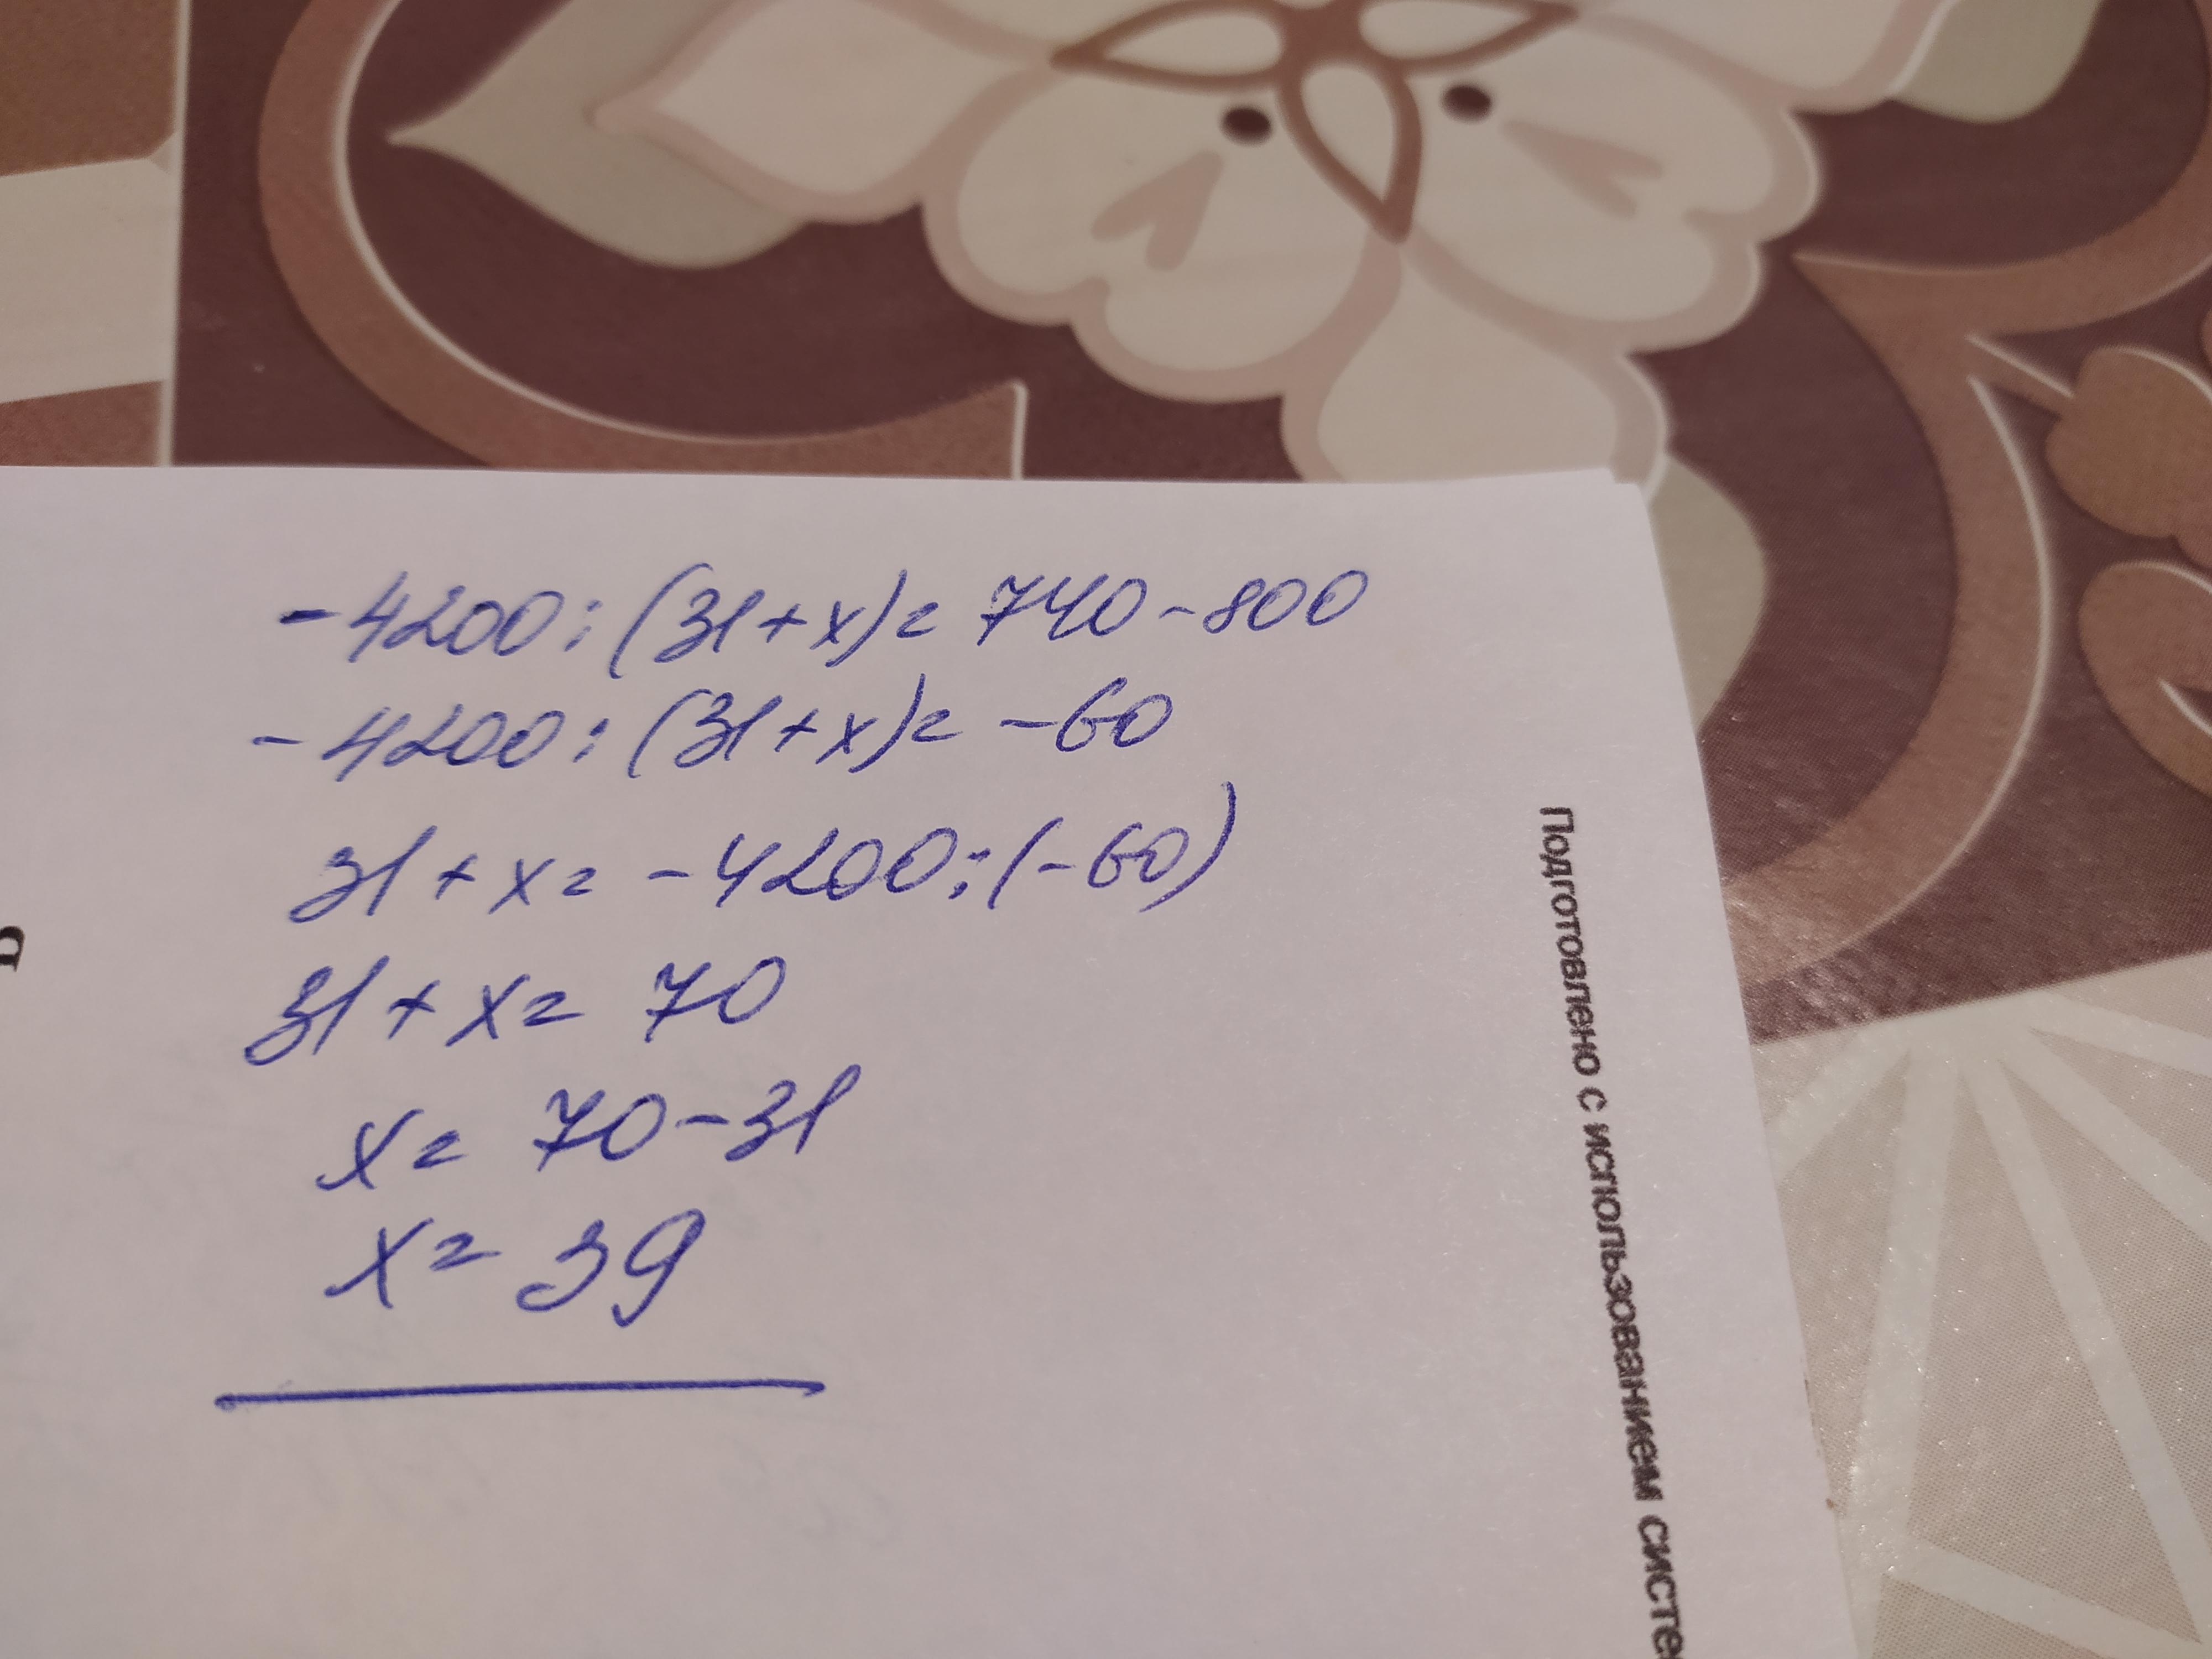 -4200:(31+x)=740-800
-4200:(31+x)=-60
31+x=-4200:(-60)
31+x=70
x=70-31
x=39
Подготовлено с использованием систем